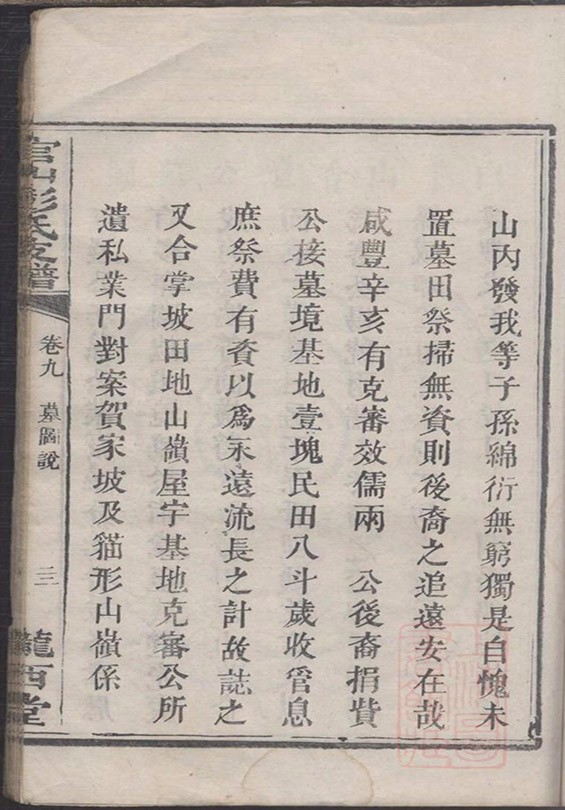 山內發我等子孫綿衍無窮獨是自愧未
置墓田祭掃無資則後裔之追遠安在哉
咸豐辛亥有克審效儒兩 公後裔捐貲
公接墓境基地壹塊民田八斗歲收管息
庶祭費有資以為永遠流長之計故誌之
又合掌坡田地山嶺屋宇基地克審公所
遺私業門對案賀家坡及貓形山嶺係
官山彭氏支譜
卷九 墓圖說 三
隴西堂